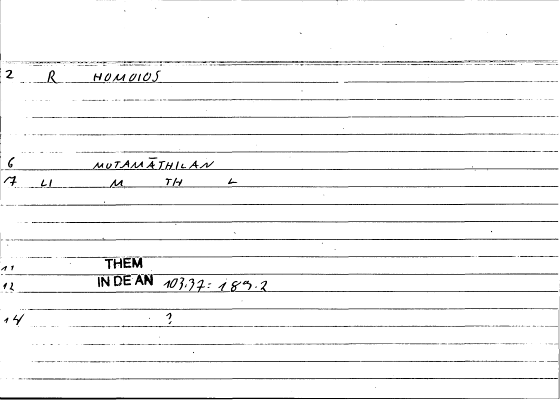 2 R HOMOIOS
6 MUTAMĀTHILAN
7 LI M TH L
11 THEM
12 IN DE AN 103.37: 189.2
14 ?